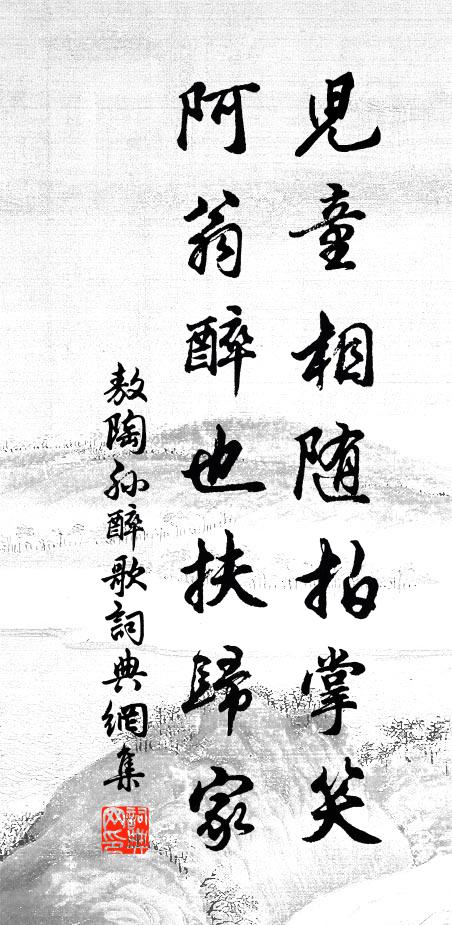 児童相随拍掌笑
阿翁醉也扶歸家
敖陶孙醉歌詞典網集